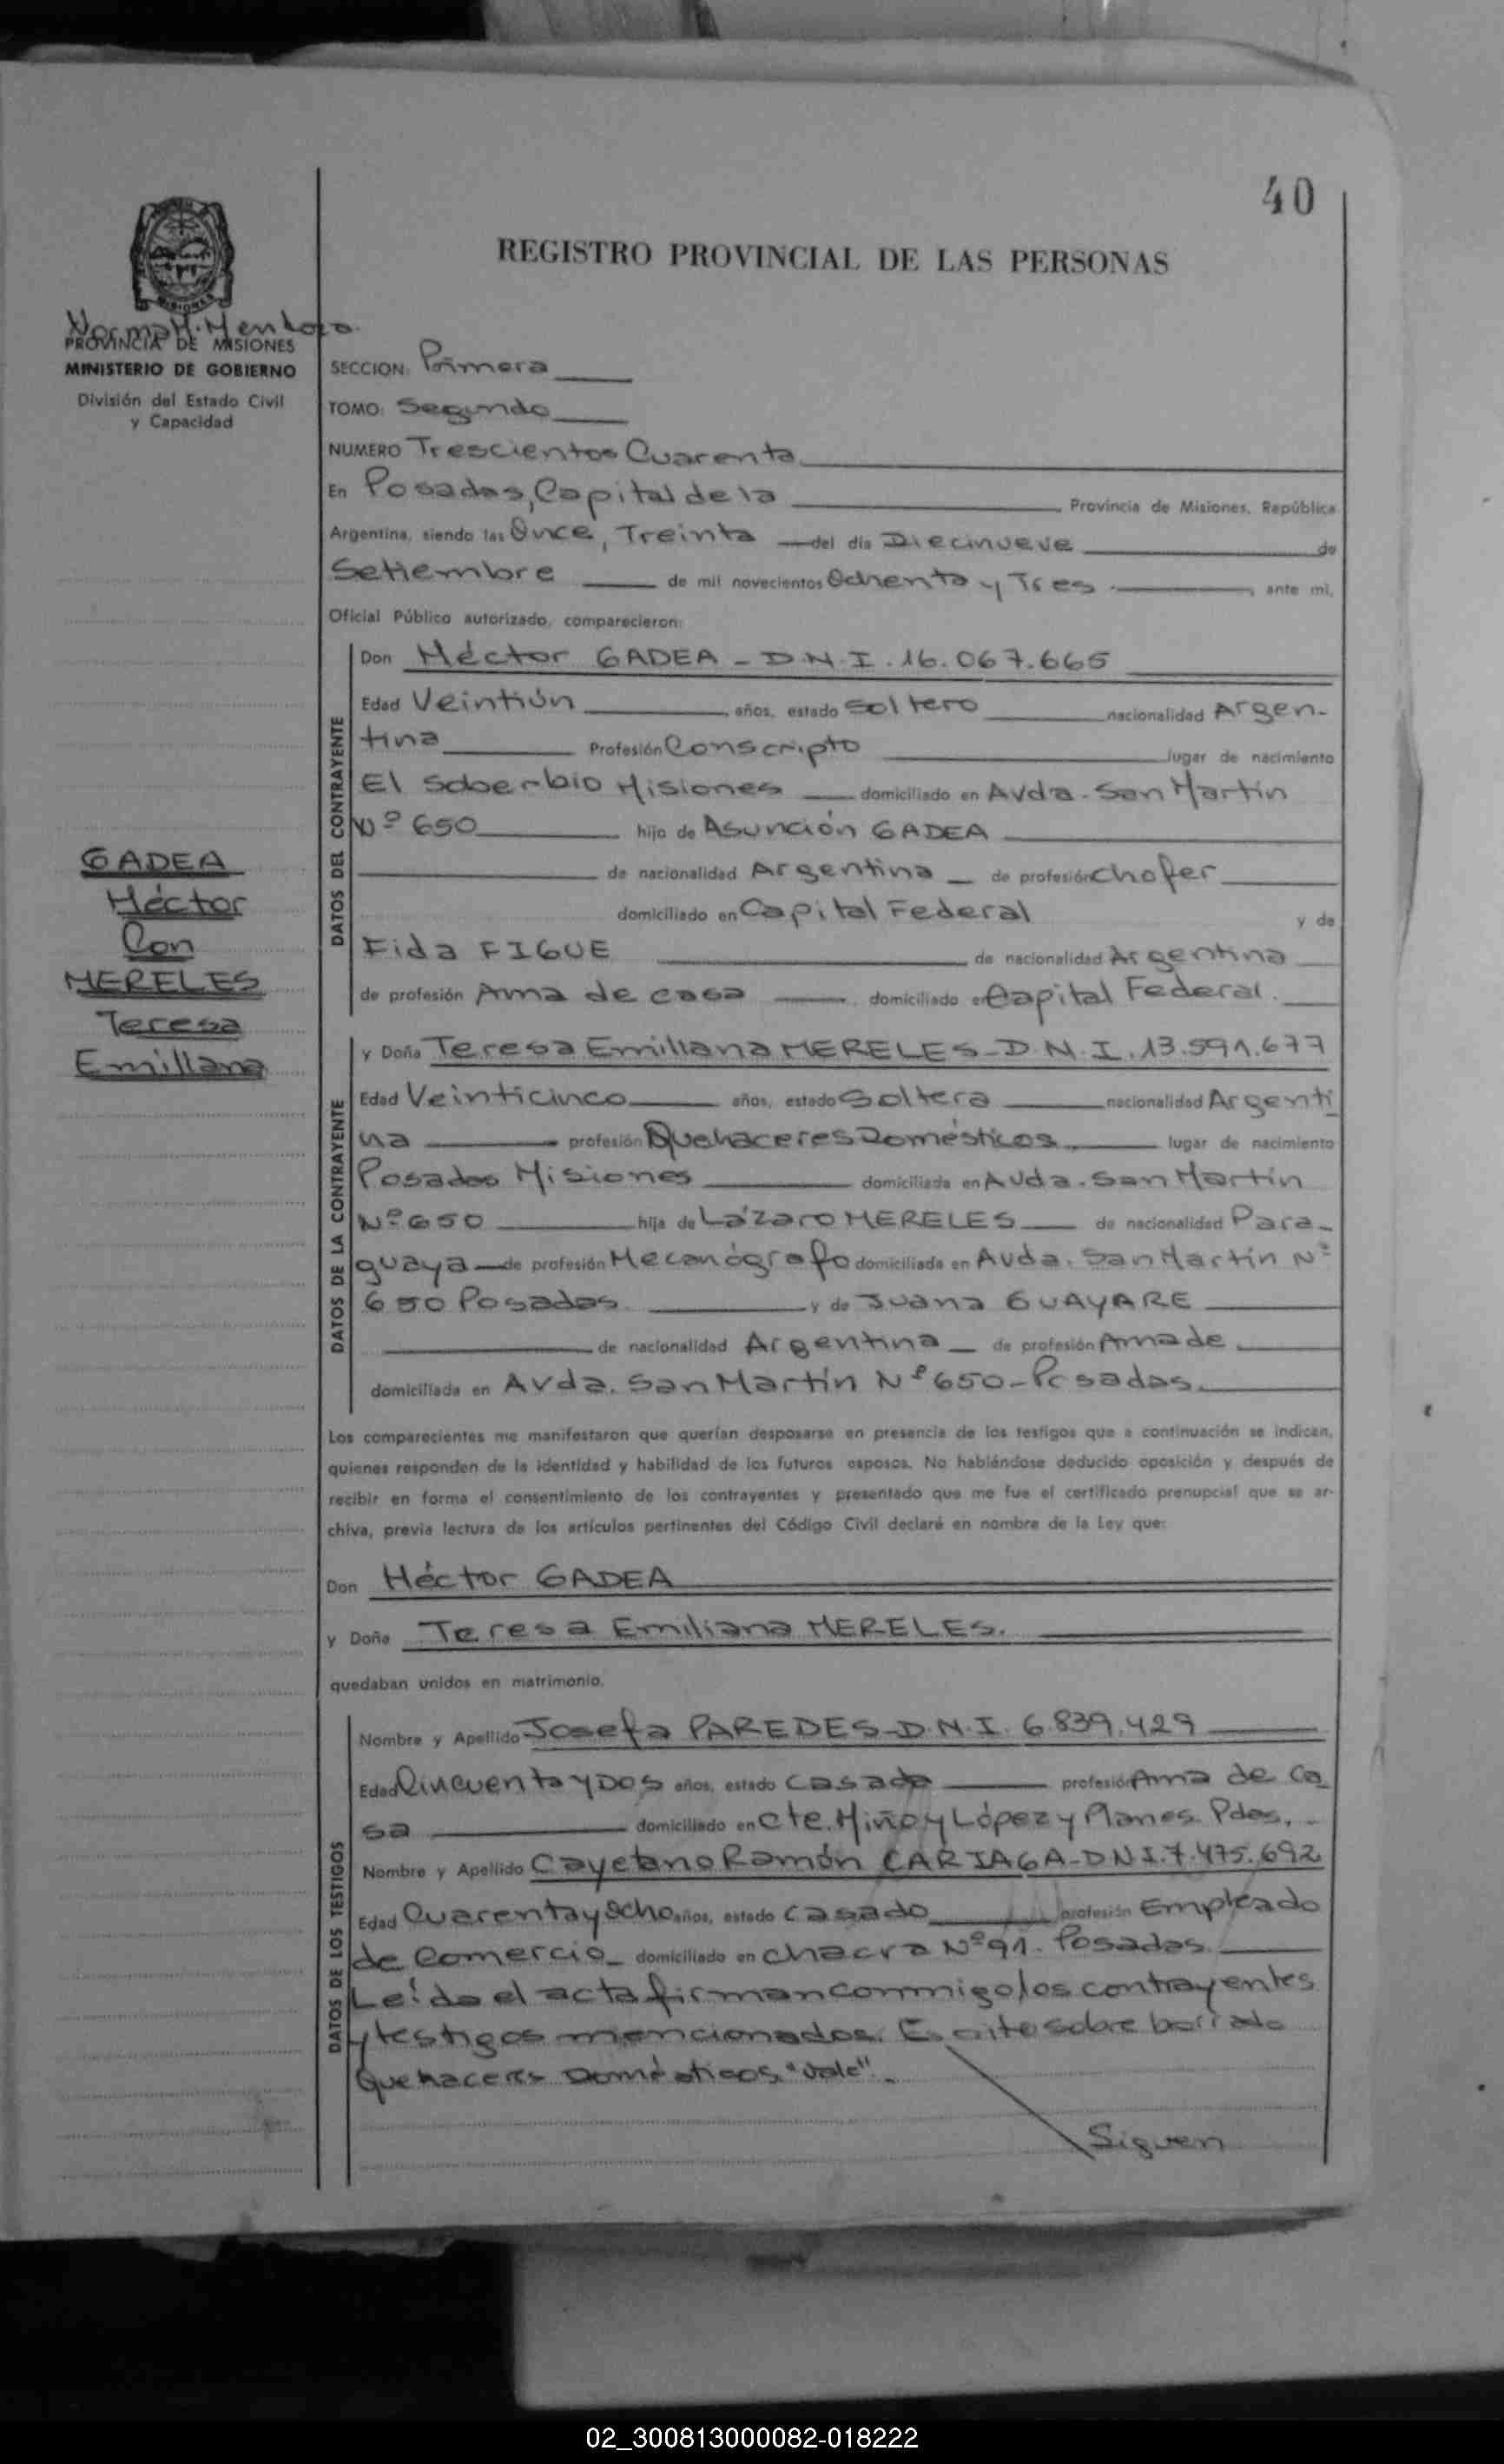 40
REGISTRO PROVINCIAL DE LAS PERSONAS
MISIONES
Norma H. Mendoza
PROVINCIA DE MISIONES
MINISTERIO DE GOBIERNO
División del Estado Civil
y Capacidad
SECCION: Primera
TOMO: Segundo
NUMERO Trescientos Cuarenta
En Posadas, Capital de la Provincia de Misiones, República
Argentina, siendo las Once, Treinta del día Diecinueve de
Setiembre de mil novecientos Ochenta y Tres ante mí,
Oficial Público autorizado, comparecieron:
DATOS DEL CONTRAYENTE
Don Héctor GADEA - D.N.I. 16.067.665
Edad Veintiún años, estado Soltero nacionalidad Argen-
tina Profesión Conscripto lugar de nacimiento
El Soberbio Misiones domiciliado en Avda. San Martín
Nº 650 hijo de Asunción GADEA
de nacionalidad Argentina de profesión Chofer
domiciliado en Capital Federal y de
Fida FIGUE de nacionalidad Argentina
de profesión Ama de casa domiciliado en Capital Federal.
GADEA
Héctor
Con
MERELES
Teresa
Emiliana
DATOS DE LA CONTRAYENTE
y Doña Teresa Emiliana MERELES - D.N.I. 13.591.677
Edad Veinticinco años, estado Soltera nacionalidad Argenti
na profesión Quehaceres Domésticos lugar de nacimiento
Posadas Misiones domiciliada en Avda. San Martín
Nº 650 hija de Lázaro MERELES de nacionalidad Para-
guaya de profesión Mecanógrafo domiciliada en Avda. San Martín Nº
650 Posadas. y de Juana GUAYARE
de nacionalidad Argentina de profesión Ama de
domiciliada en Avda. San Martín Nº 650 - Posadas.
Los comparecientes me manifestaron que querían desposarse en presencia de los testigos que a continuación se indican,
quienes responden de la identidad y habilidad de los futuros esposos. No habiéndose deducido oposición y después de
recibir en forma el consentimiento de los contrayentes y presentado que me fue el certificado prenupcial que se ar-
chiva, previa lectura de los artículos pertinentes del Código Civil declaré en nombre de la Ley que:
Don Héctor GADEA
y Doña Teresa Emiliana MERELES.
quedaban unidos en matrimonio.
DATOS DE LOS TESTIGOS
Nombre y Apellido Josefa PAREDES - D.N.I. 6.839.429
Edad Cincuenta y Dos años, estado casada profesión Ama de Ca
sa domiciliado en Cte. Miño y López y Planes Pdas.
Nombre y Apellido Cayetano Ramón CARIAGA - DNI. 7.475.692
Edad Cuarenta y Ocho años, estado casado profesión Empleado
de Comercio domiciliado en chacra Nº 91 - Posadas
Leída el acta firman conmigo los contrayentes
y testigos mencionados. Escrito sobre borrado
Quehaceres Domésticos "Vale".
Siguen
02_300813000082-018222